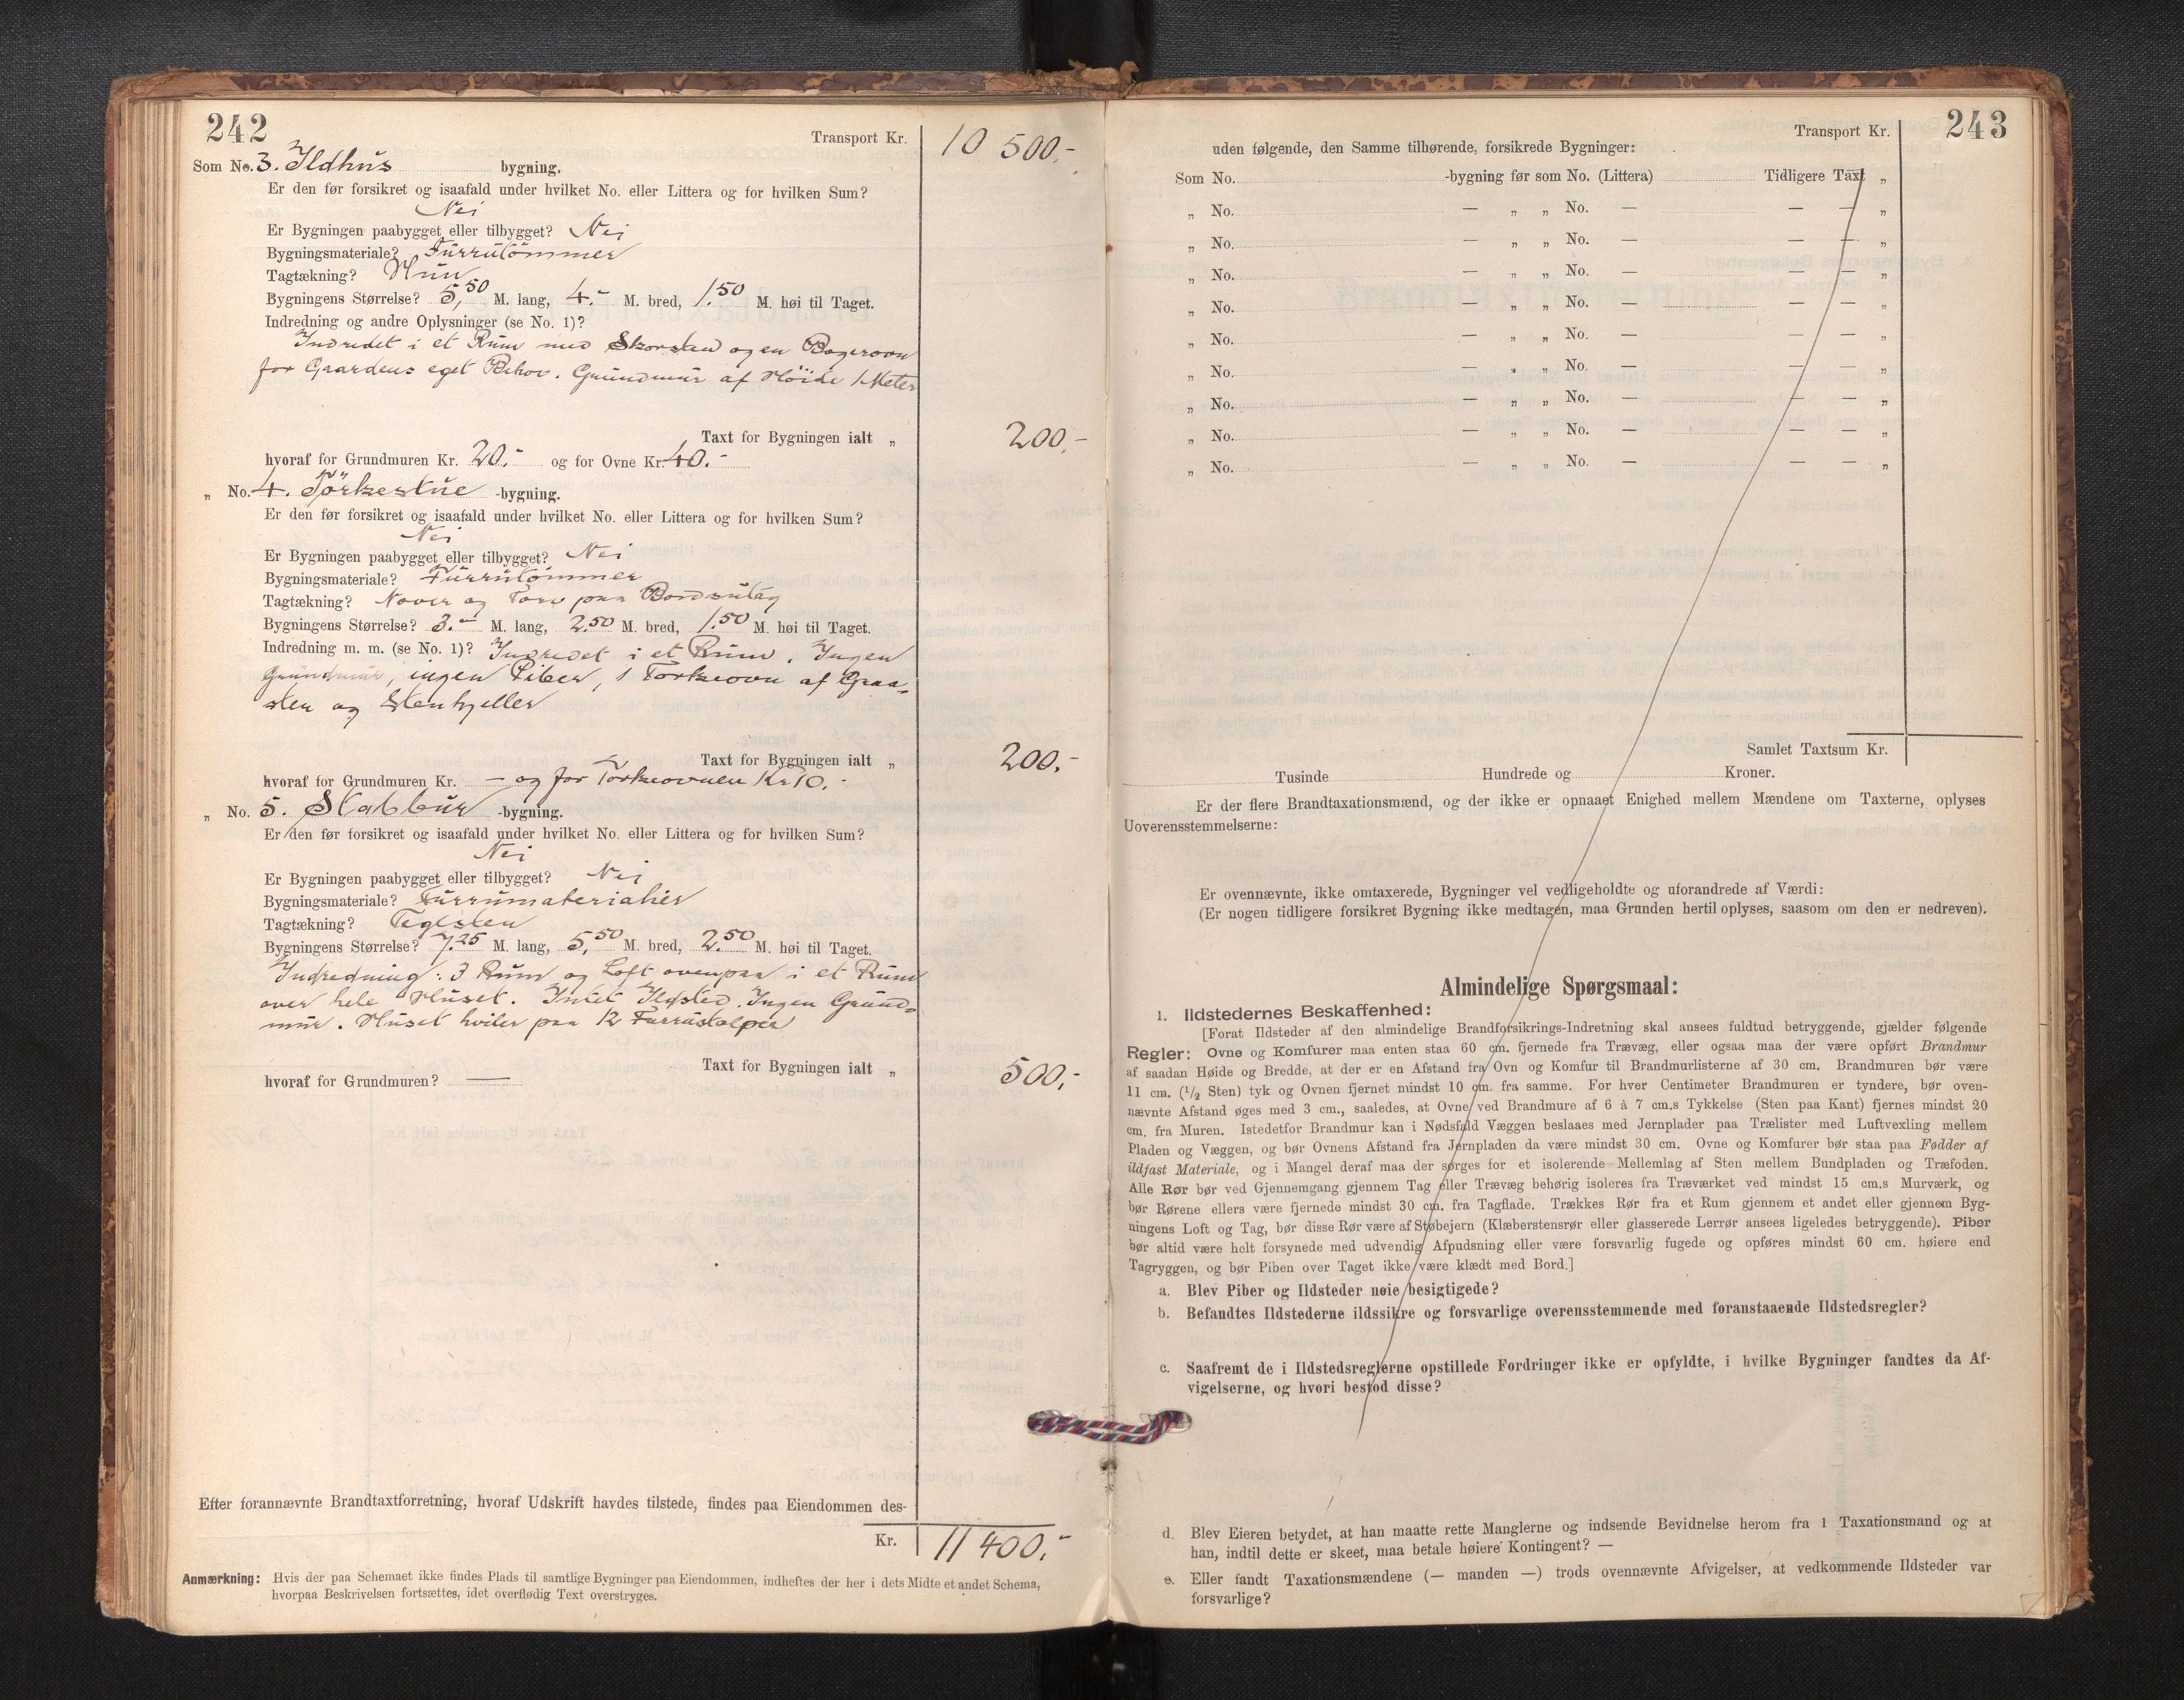 242
Transport Kr. 10 500,-
Som No. 3. Ildhus bygning.
Er den før forsikret og isaafald under hvilket No. eller Littera og for hvilken Sum?
Nei
Er Bygningen paabygget eller tilbygget? Nei
Bygningsmateriale? Furrutømmer
Tagtækning? Hun
Bygningens Størrelse? 5,50 M. lang, 4.- M. bred, 1.50 M. høi til Taget.
Indredning og andre Oplysninger (se No. 1)?
Indredet i et Rum med Skorsten og en Bagerovn
for Gaardens eget Behov. Grundmur af Høide 1 Meter
Taxt for Bygningen ialt „ 200,-
hvoraf for Grundmuren Kr. 20.- og for Ovne Kr. 40.-
„ No. 4. Törkestue -bygning.
Er den før forsikret og isaafald under hvilket No. eller Littera og for hvilken Sum?
Nei
Er Bygningen paabygget eller tilbygget? Nei
Bygningsmateriale? Furrutømmer
Tagtækning? Never og Torv paa Bordsutag
Bygningens Størrelse? 3.- M. lang, 2.50 M. bred, 1.50 M. høi til Taget.
Indredning m. m. (se No. 1)? Indredet i et Rum. Ingen
Grundmur, ingen Piber, 1 Tørkeovn af Graa-
sten og Stenhjeller
Taxt for Bygningen ialt „ 200.-
hvoraf for Grundmuren Kr. — og for Tørkeovnen Kr 10.-
„ No. 5. Stabbur -bygning.
Er den før forsikret og isaafald under hvilket No. eller Littera og for hvilken Sum?
Nei
Er Bygningen paabygget eller tilbygget? Nei
Bygningsmateriale? Furrumaterialier
Tagtækning? Teglsten
Bygningens Størrelse? 7.25 M. lang, 5,50 M. bred, 2.50 M. høi til Taget.
Indredning: 3 Rum og Loft ovenpaa i et Rum
over hele Huset. Intet Ildsted. Ingen Grund-
mur. Huset hviler paa 12 Furrustolper
Taxt for Bygningen ialt „ 500,-
hvoraf for Grundmuren? —
Efter forannævnte Brandtaxtforretning, hvoraf Udskrift havdes tilstede, findes paa Eiendommen des-
Kr. 11 400.-
Anmærkning: Hvis der paa Schemaet ikke findes Plads til samtlige Bygninger paa Eiendommen, indheftes der her i dets Midte et andet Schema,
hvorpaa Beskrivelsen fortsættes, idet overflødig Text overstryges.
243
Transport Kr.
uden følgende, den Samme tilhørende, forsikrede Bygninger:
Som No. -bygning før som No. (Littera) Tidligere Taxt „
„ No. — „ „ No. — — — „
„ No. — „ „ No. — — — „
„ No. — „ „ No. — — — „
„ No. — „ „ No. — — — „
„ No. — „ „ No. — — — „
„ No. — „ „ No. — — — „
„ No. — „ „ No. — — — „
„ No. — „ „ No. — — — „
„ No. — „ „ No. — — — „
Samlet Taxtsum Kr.
Tusinde Hundrede og Kroner.
Er der flere Brandtaxationsmænd, og der ikke er opnaaet Enighed mellem Mændene om Taxterne, oplyses
Uoverensstemmelserne:
Er ovennævnte, ikke omtaxerede, Bygninger vel vedligeholdte og uforandrede af Værdi:
(Er nogen tidligere forsikret Bygning ikke medtagen, maa Grunden hertil oplyses, saasom om den er nedreven).
Almindelige Spørgsmaal:
1. Ildstedernes Beskaffenhed:
[Forat Ildsteder af den almindelige Brandforsikrings-Indretning skal ansees fuldtud betryggende, gjælder følgende
Regler: Ovne og Komfurer maa enten staa 60 cm. fjernede fra Trævæg, eller ogsaa maa der være opført Brandmur
af saadan Høide og Bredde, at der er en Afstand fra Ovn og Komfur til Brandmurlisterne af 30 cm. Brandmuren bør være
11 cm. (1/2 Sten) tyk og Ovnen fjernet mindst 10 cm. fra samme. For hver Centimeter Brandmuren er tyndere, bør oven-
nævnte Afstand øges med 3 cm., saaledes, at Ovne ved Brandmure af 6 à 7 cm.s Tykkelse (Sten paa Kant) fjernes mindst 20
cm. fra Muren. Istedetfor Brandmur kan i Nødsfald Væggen beslaaes med Jernplader paa Trælister med Luftvexling mellem
Pladen og Væggen, og bør Ovnens Afstand fra Jernpladen da være mindst 30 cm. Ovne og Komfurer bør staa paa Fødder af
ildfast Materiale, og i Mangel deraf maa der sørges for et isolerende Mellemlag af Sten mellem Bundpladen og Træfoden.
Alle Rør bør ved Gjennemgang gjennem Tag eller Trævæg behørig isoleres fra Træværket ved mindst 15 cm.s Murværk, og
bør Rørene ellers være fjernede mindst 30 cm. fra Tagflade. Trækkes Rør fra et Rum gjennem et andet eller gjennem Byg-
ningens Loft og Tag, bør disse Rør være af Støbejern (Klæberstensrør eller glasserede Lerrør ansees ligeledes betryggende). Piber
bør altid være helt forsynede med udvendig Afpudsning eller være forsvarlig fugede og opføres mindst 60 cm. høiere end
Tagryggen, og bør Piben over Taget ikke være klædt med Bord.]
a. Blev Piber og Ildsteder nøie besigtigede?
b. Befandtes Ildstederne ildssikre og forsvarlige overensstemmende med foranstaaende Ildstedsregler?
c. Saafremt de i Ildstedsreglerne opstillede Fordringer ikke er opfyldte, i hvilke Bygninger fandtes da Af-
vigelserne, og hvori bestod disse?
d. Blev Eieren betydet, at han maatte rette Manglerne og indsende Bevidnelse herom fra 1 Taxationsmand og at
han, indtil dette er skeet, maa betale høiere Kontingent? —
e. Eller fandt Taxationsmændene (— manden —) trods ovennævnte Afvigelser, at vedkommende Ildsteder var
forsvarlige?